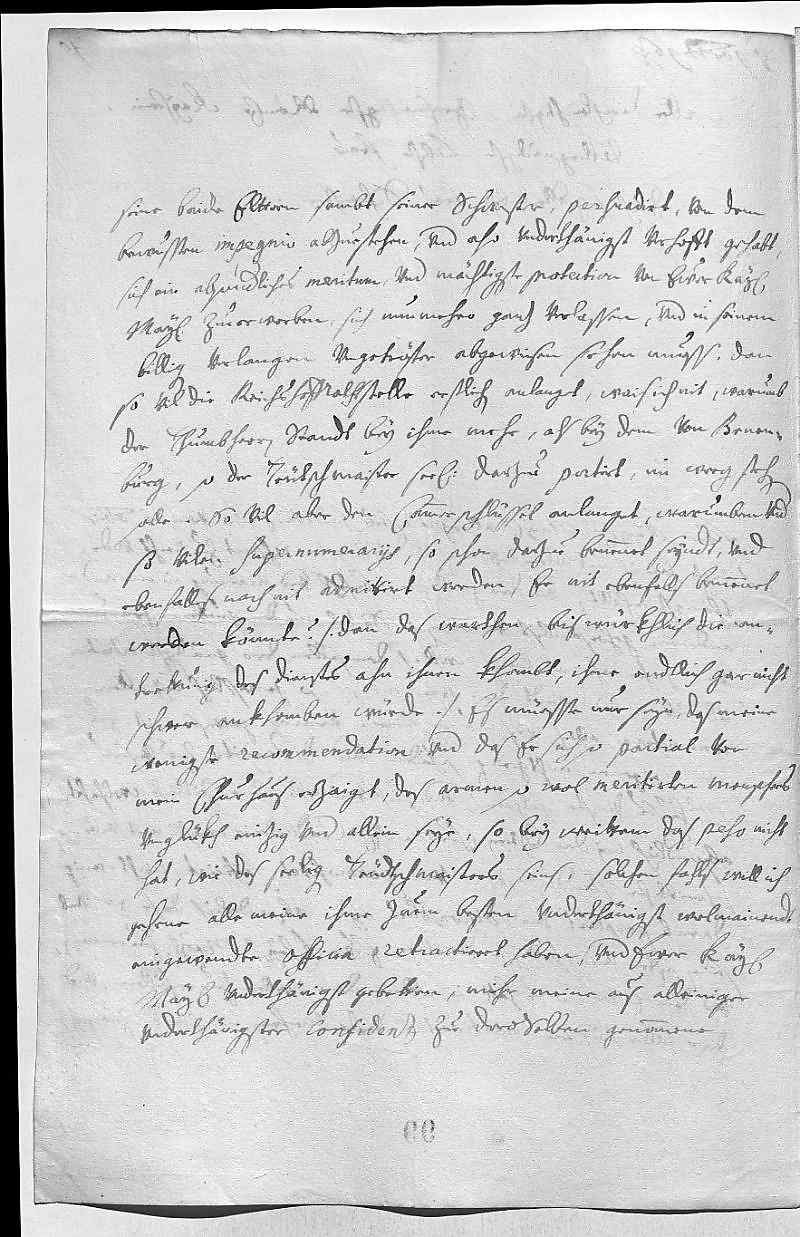 seine beide Elttern sambt seiner Schwester, persuadirt, von dem
bewussten impegnio abzustehen, vnd also vnderthänigst verhofft gehabt,
sich ein absonderliches meritum, vnd mächtigste protection von Ewer Kay:
May: zuerwerben, sich nunmehro gantz verlassen, vnd in seinem
billig verlangen vngetröster abgewisen sehen muess, dan
so vil die Reichshoffrathsstelle erstlich anlangt, wais ich nit, warumb
der Thumbherrn Standt bey ihme mehr, als bey dem von
burg, so der Teütschmaister seel: darzue portirt, im weeg steh
solle. So vil aber den Cammerschlüssel anlanget, warumben vnd
so vilen supernumerarys, so schon darzue benennet seyndt, vnd
ebenfalls noch nit admitirt werden, Er nit ebenfalls benennet
werden könnte? /: dan das warthen, bis würkhlich die an-
trettung des diensts ahn ihnen khombt, ihme endtlich gar nicht
schwer ankhomben würde :/ Es müesste nur seyn, das meine
wenigste recommendation vnd das Er sich so partial von
mein Churhaus erzaigt, des armen so wol meritirten menschens
vnglükh eintzig vnd allein seye, so bey weittem das peso nicht
hat, wie des seelig Teüdschmaisters seins, solchen fahls will ich
gehrne alle meine ihme zum besten vnderthänigst wolmainendt
eingewendte officia retractiert haben, vnd Ewer Kay:
May: vnderthänigst gebetten, mihr meine aus alleiniger
vnderthänigster confidentz zue deroselben genommene